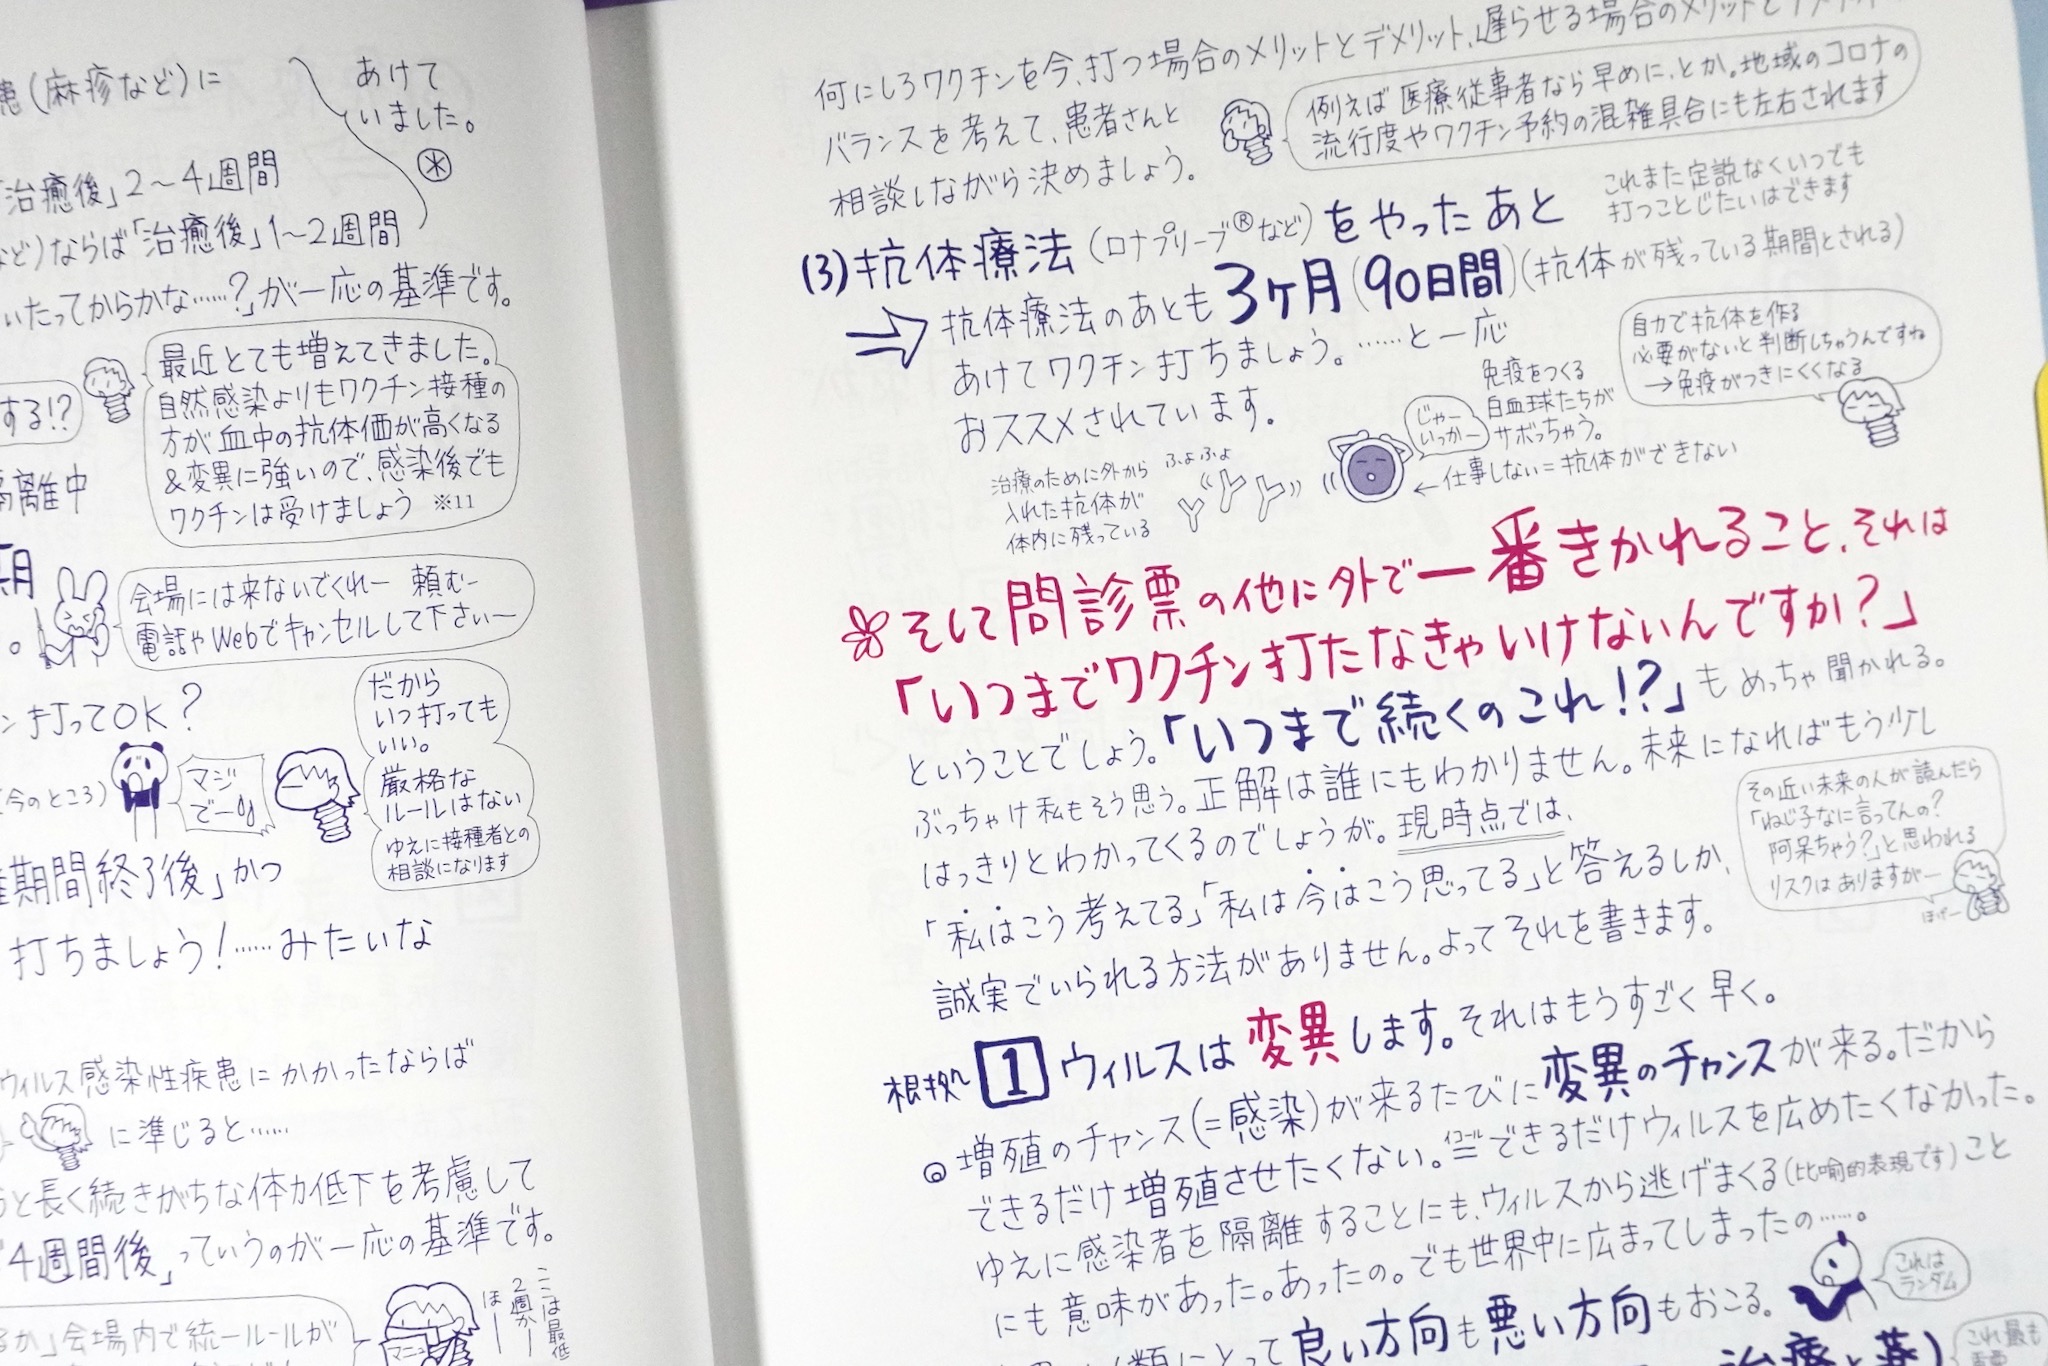 患(麻疹など)に
あけて
いました。
「治癒後」2〜4週間
など)ならば「治癒後」1〜2週間
いたってからかな……?」が一応の基準です。
最近とても増えてきました。
自然感染よりもワクチン接種の
方が血中の抗体価が高くなる
&変異に強いので、感染後でも
ワクチンは受けましょう ※11
する!?
隔離中
期
会場には来ないでくれー 頼むー
電話やWebでキャンセルして下さい〜
ン打ってOK?
だから
いつ打っても
いい。
厳格な
ルールはない
ゆえに接種者との
相談になります
(今のところ)
マジ
でーー
期間終了後」かつ
打ちましょう!……みたいな
ウィルス感染性疾患にかかったならば
に準じると……
と長く続きがちな体力低下を考慮して
「4週間後」っていうのが一応の基準です。
ここは最低
2週かー
ほー
マニュ
るか」会場内で統一ルールが
何にしろワクチンを今、打つ場合のメリットとデメリット、遅らせる場合のメリットとデメリット
バランスを考えて、患者さんと
相談しながら決めましょう。
例えば医療従事者なら早めに、とか。地域のコロナの
流行度やワクチン予約の混雑具合にも左右されます
(3)抗体療法(ロナプリーブ®など)をやったあと
これまた定説なくいつでも
打つことじたいはできます
⇒抗体療法のあとも3ヶ月(90日間)(抗体が残っている期間とされる)
あけてワクチン打ちましょう。……と一応
おススメされています。
自力で抗体を作る
必要がないと判断しちゃうんですね
→免疫がつきにくくなる
免疫をつくる
白血球たちが
サボっちゃう。
じゃー
いっかー
←仕事しない=抗体ができない
ふよふよ
治療のために外から
入れた抗体が
体内に残っている
そして問診票の他に外で一番きかれること、それは
「いつまでワクチン打たなきゃいけないんですか?」
ということでしょう。「いつまで続くのこれ!?」もめっちゃ聞かれる。
ぶっちゃけ私もそう思う。正解は誰にもわかりません。未来になればもう少し
はっきりとわかってくるのでしょうが。現時点では、
「私はこう考えてる」「私は今はこう思ってる」と答えるしか、
誠実でいられる方法がありません。よってそれを書きます。
その近い未来の人が読んだら
「ねじ子なに言ってんの?
阿呆ちゃう?」と思われる
リスクはありますがー
ほげー
根拠 1 ウィルスは変異します。それはもうすごく早く。
増殖のチャンス(=感染)が来るたびに変異のチャンスが来る。だから
できるだけ増殖させたくない。=イコールできるだけウィルスを広めたくなかった。
ゆえに感染者を隔離することにも、ウィルスから逃げまくる(比喩的表現です)こと
にも意味があった。あったの。でも世界中に広まってしまったの……。
良い方向も悪い方向もおこる。
これは
ランダム
治療と薬)
これ最も